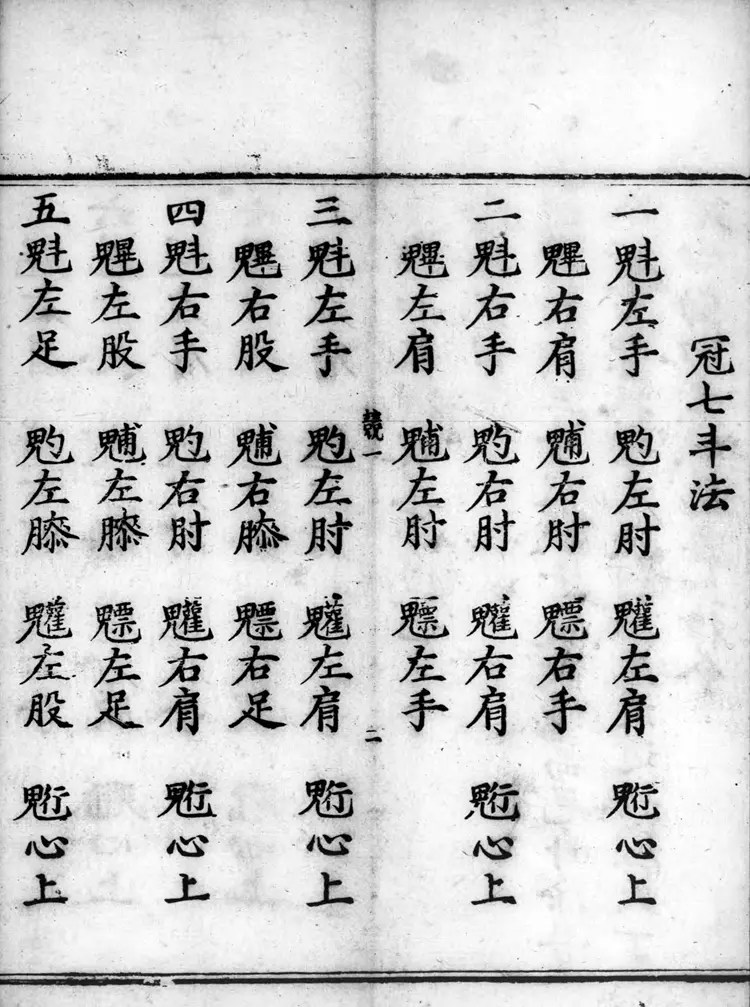 冠七斗法
一魁左手 𩲃左肘 䰱左肩 䰢心上
魓右肩 𩳐右肘 魒右手
二魁右手 𩲃右肘 䰱右肩 䰢心上
魓左肩 𩳐左肘 魒左手
一 二
三魁左手 𩲃左肘 䰱左肩 䰢心上
魓右股 𩳐右膝 魒右足
四魁右手 𩲃右肘 䰱右肩 䰢心上
魓左股 𩳐左膝 魒左足
五魁左足 𩲃左膝 䰱左股 䰢心上